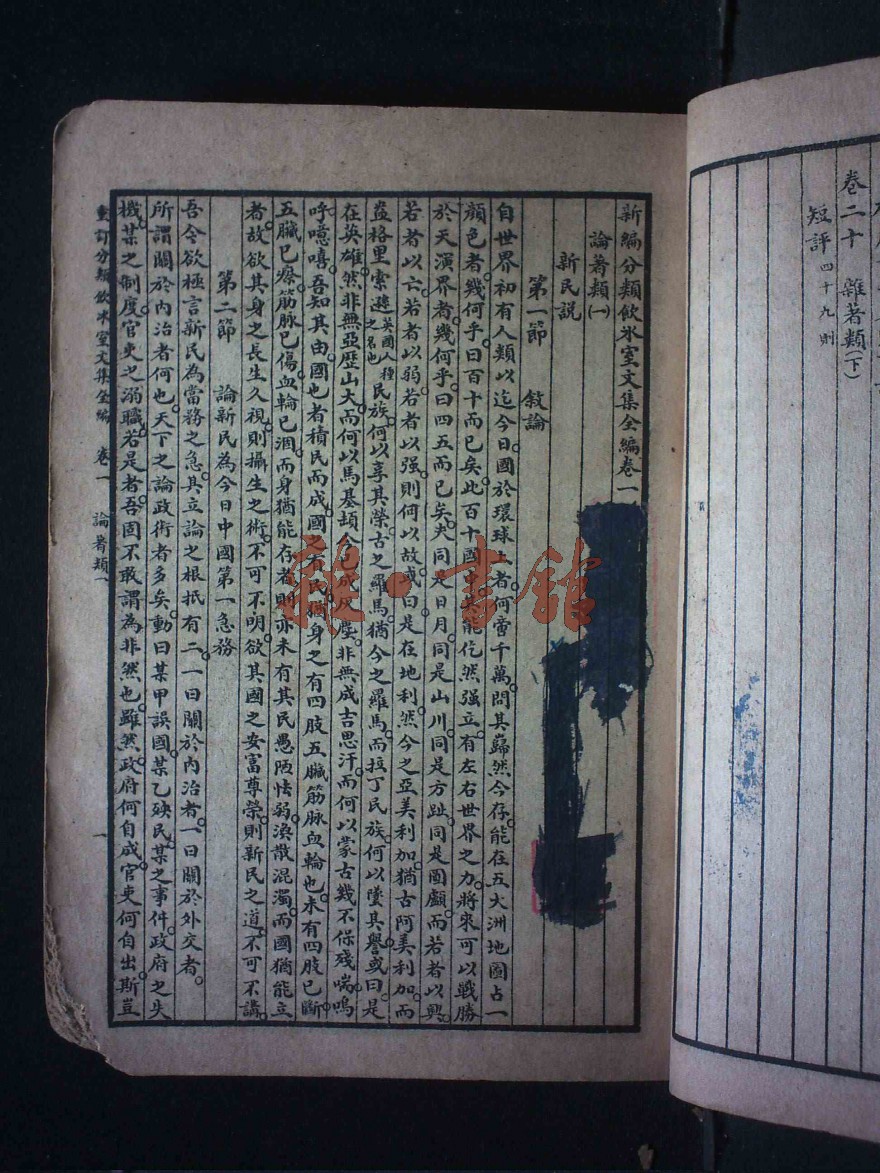 卷二十 雜著類(下)
短評 四十九則
新編分類飲氷室文集全編卷一
論著類(一)
新民説
第一節 敘論
自世界初有人類以迄今日國於環球上者何啻千萬問其巋然今存能在五大洲地圖占一
顔色者幾何乎曰百十而已矣此百十國中其能仡然强立有左右世界之力將來可以戰勝
於天演界者幾何乎曰四五而已矣夫同是日月同是山川同是方趾同是圓顱而若者以興
若者以亡若者以弱若者以强則何以故或曰是在地利然今之亞美利加猶古阿美利加而
盎格里索遜英國人種之名也民族何以享其榮古之羅馬猶今之羅馬而拉丁民族何以墜其譽或曰是
在英雄然非無亞歷山大而何以馬基頓今已成灰塵非無成吉思汗而何以蒙古幾不保殘喘嗚
呼噫嘻吾知其由國也者積民而成國之有民猶身之有四肢五臟筋脉血輪也未有四肢已斷
五臟已瘵筋脉已傷血輪已涸而身猶能存者則亦未有其民愚陋怯弱渙散混濁而國猶能立
者故欲其身之長生久視則攝生之術不可不明欲其國之安富尊榮則新民之道不可不講
第二節 論新民為今日中國第一急務
吾今欲極言新民為當務之急其立論之根抵有二一曰關於內治者一曰關於外交者
所謂關於內治者何也天下之論政術者多矣動曰某甲誤國某乙殃民某之事件政府之失
機某之制度官吏之溺職若是者吾固不敢謂為非然也雖然政府何自成官吏何自出斯豈
重訂分類飲氷室文集全編 卷一 論著類一 一
雜·書館